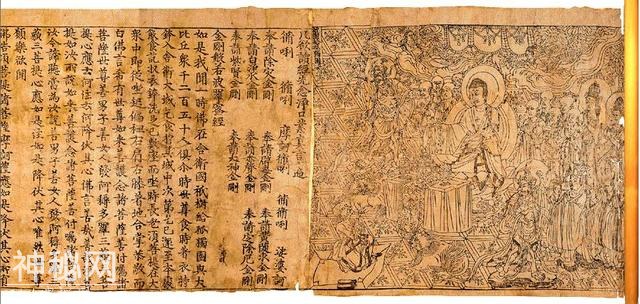 凡欲讀經先念淨口業真言一遍
脩唎 脩唎 摩訶脩唎 脩脩唎 娑婆訶
奉請除灾金剛 奉請辟毒金剛
奉請白淨水金剛
奉請紫賢金剛 奉請大神金剛
金剛般若波羅蜜經
如是我聞一時佛在舍衛國祇樹給孤獨園與大
比丘衆千二百五十人俱尒時世尊食時著衣持
鉢入舍衛大城乞食於其城中次第乞已還至本處
飯食訖收衣鉢洗足已敷座而坐時長老須菩提在大
衆中即從座起偏袒右肩右膝著地合掌恭敬而
白佛言希有世尊如來善護念諸菩薩善付囑諸
菩薩世尊善男子善女人發阿耨多羅三藐三
菩提心應云何住云何降伏其心佛言善哉善哉須菩
提如汝所說如來善護念諸菩薩善付囑諸菩薩
汝今諦聽當為汝說善男子善女人發阿耨多羅三
藐三菩提心應如是住如是降伏其心唯然世尊
願樂欲聞
佛告須菩提諸菩薩摩訶薩應如是降伏其心所有
神秘网